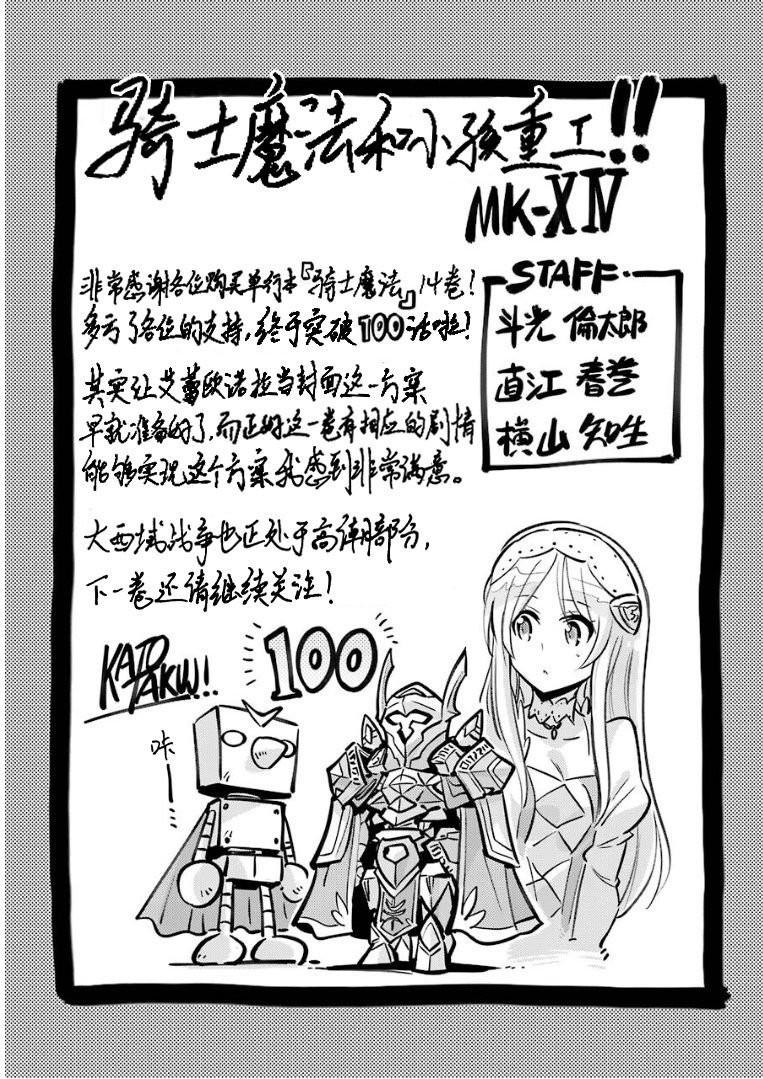 骑士魔法和小孩重工!!
MK-XIV
非常感谢各位购买单行本『骑士魔法』14卷!
多亏了各位的支持,终于突破100话啦!
其实让艾蕾欧诺拉当封面这一方案
早就准备好了,而正好这一卷有相应的剧情
能够实现这个方案我感到非常满意。
大西域战争也正处于高潮部分,
下一卷还请继续关注!
STAFF
斗光 倫太郎
直江 春巻
横山 知生
KATO
TAKU!!
100
咔